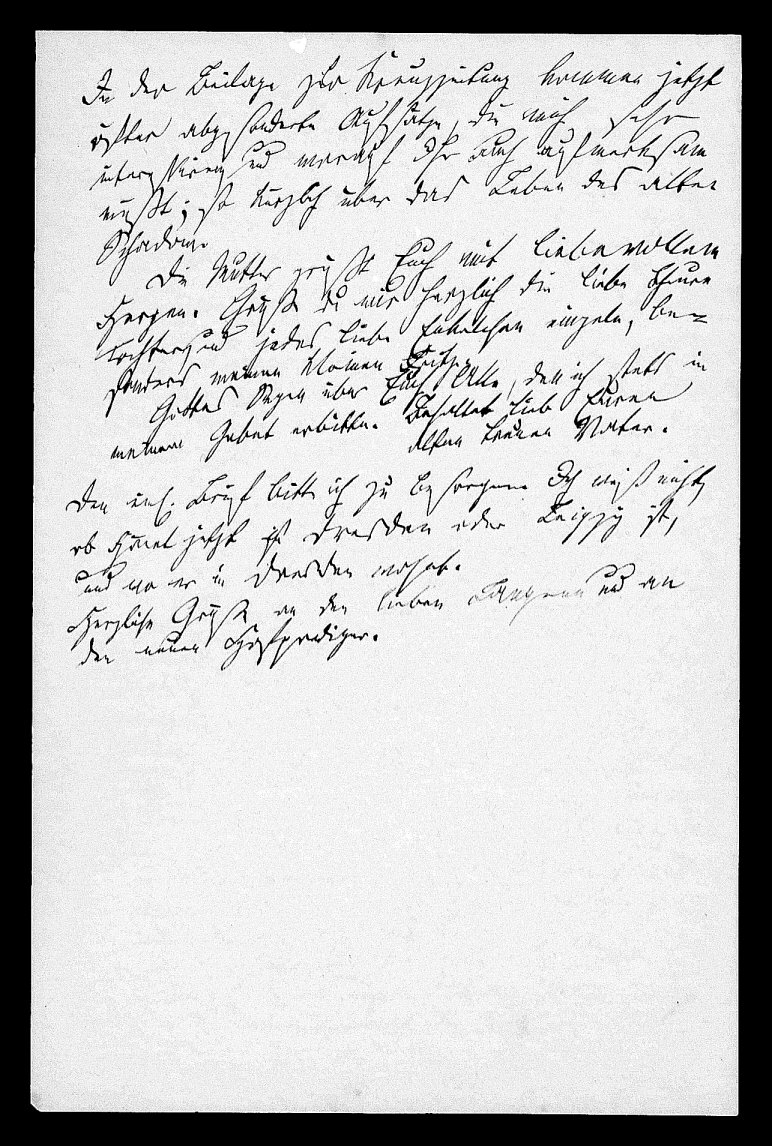 In der Beilage zur Kreuzzeitung kommen jetzt
öfter abgesonderte Aufsätze, die mich sehr
interessiren und worauf Ihr Euch aufmerksam
müßt; so kürzlich über das Leben des alten
Schadow.
Die Mutter grüßt Euch mit liebevollem
Herzen. Grüße du mir herzlich die liebe theure
Tochter und jedes liebe Enkelchen einzeln, be=
sonders meinen kleinen
Gottes Segen über Euch Alle, den ich stets in
meinem Gebet erbitte. Behaltet lieb Euren
alten treuen Vater.
Den inl. Brief bitte ich zu besorgen. Ich weiß nicht,
ob jetzt in Dresden oder Leipzig ist,
und wo er in Dresden wohnt.
Herzliche Grüße an den lieben und an
den neuen Hofprediger.